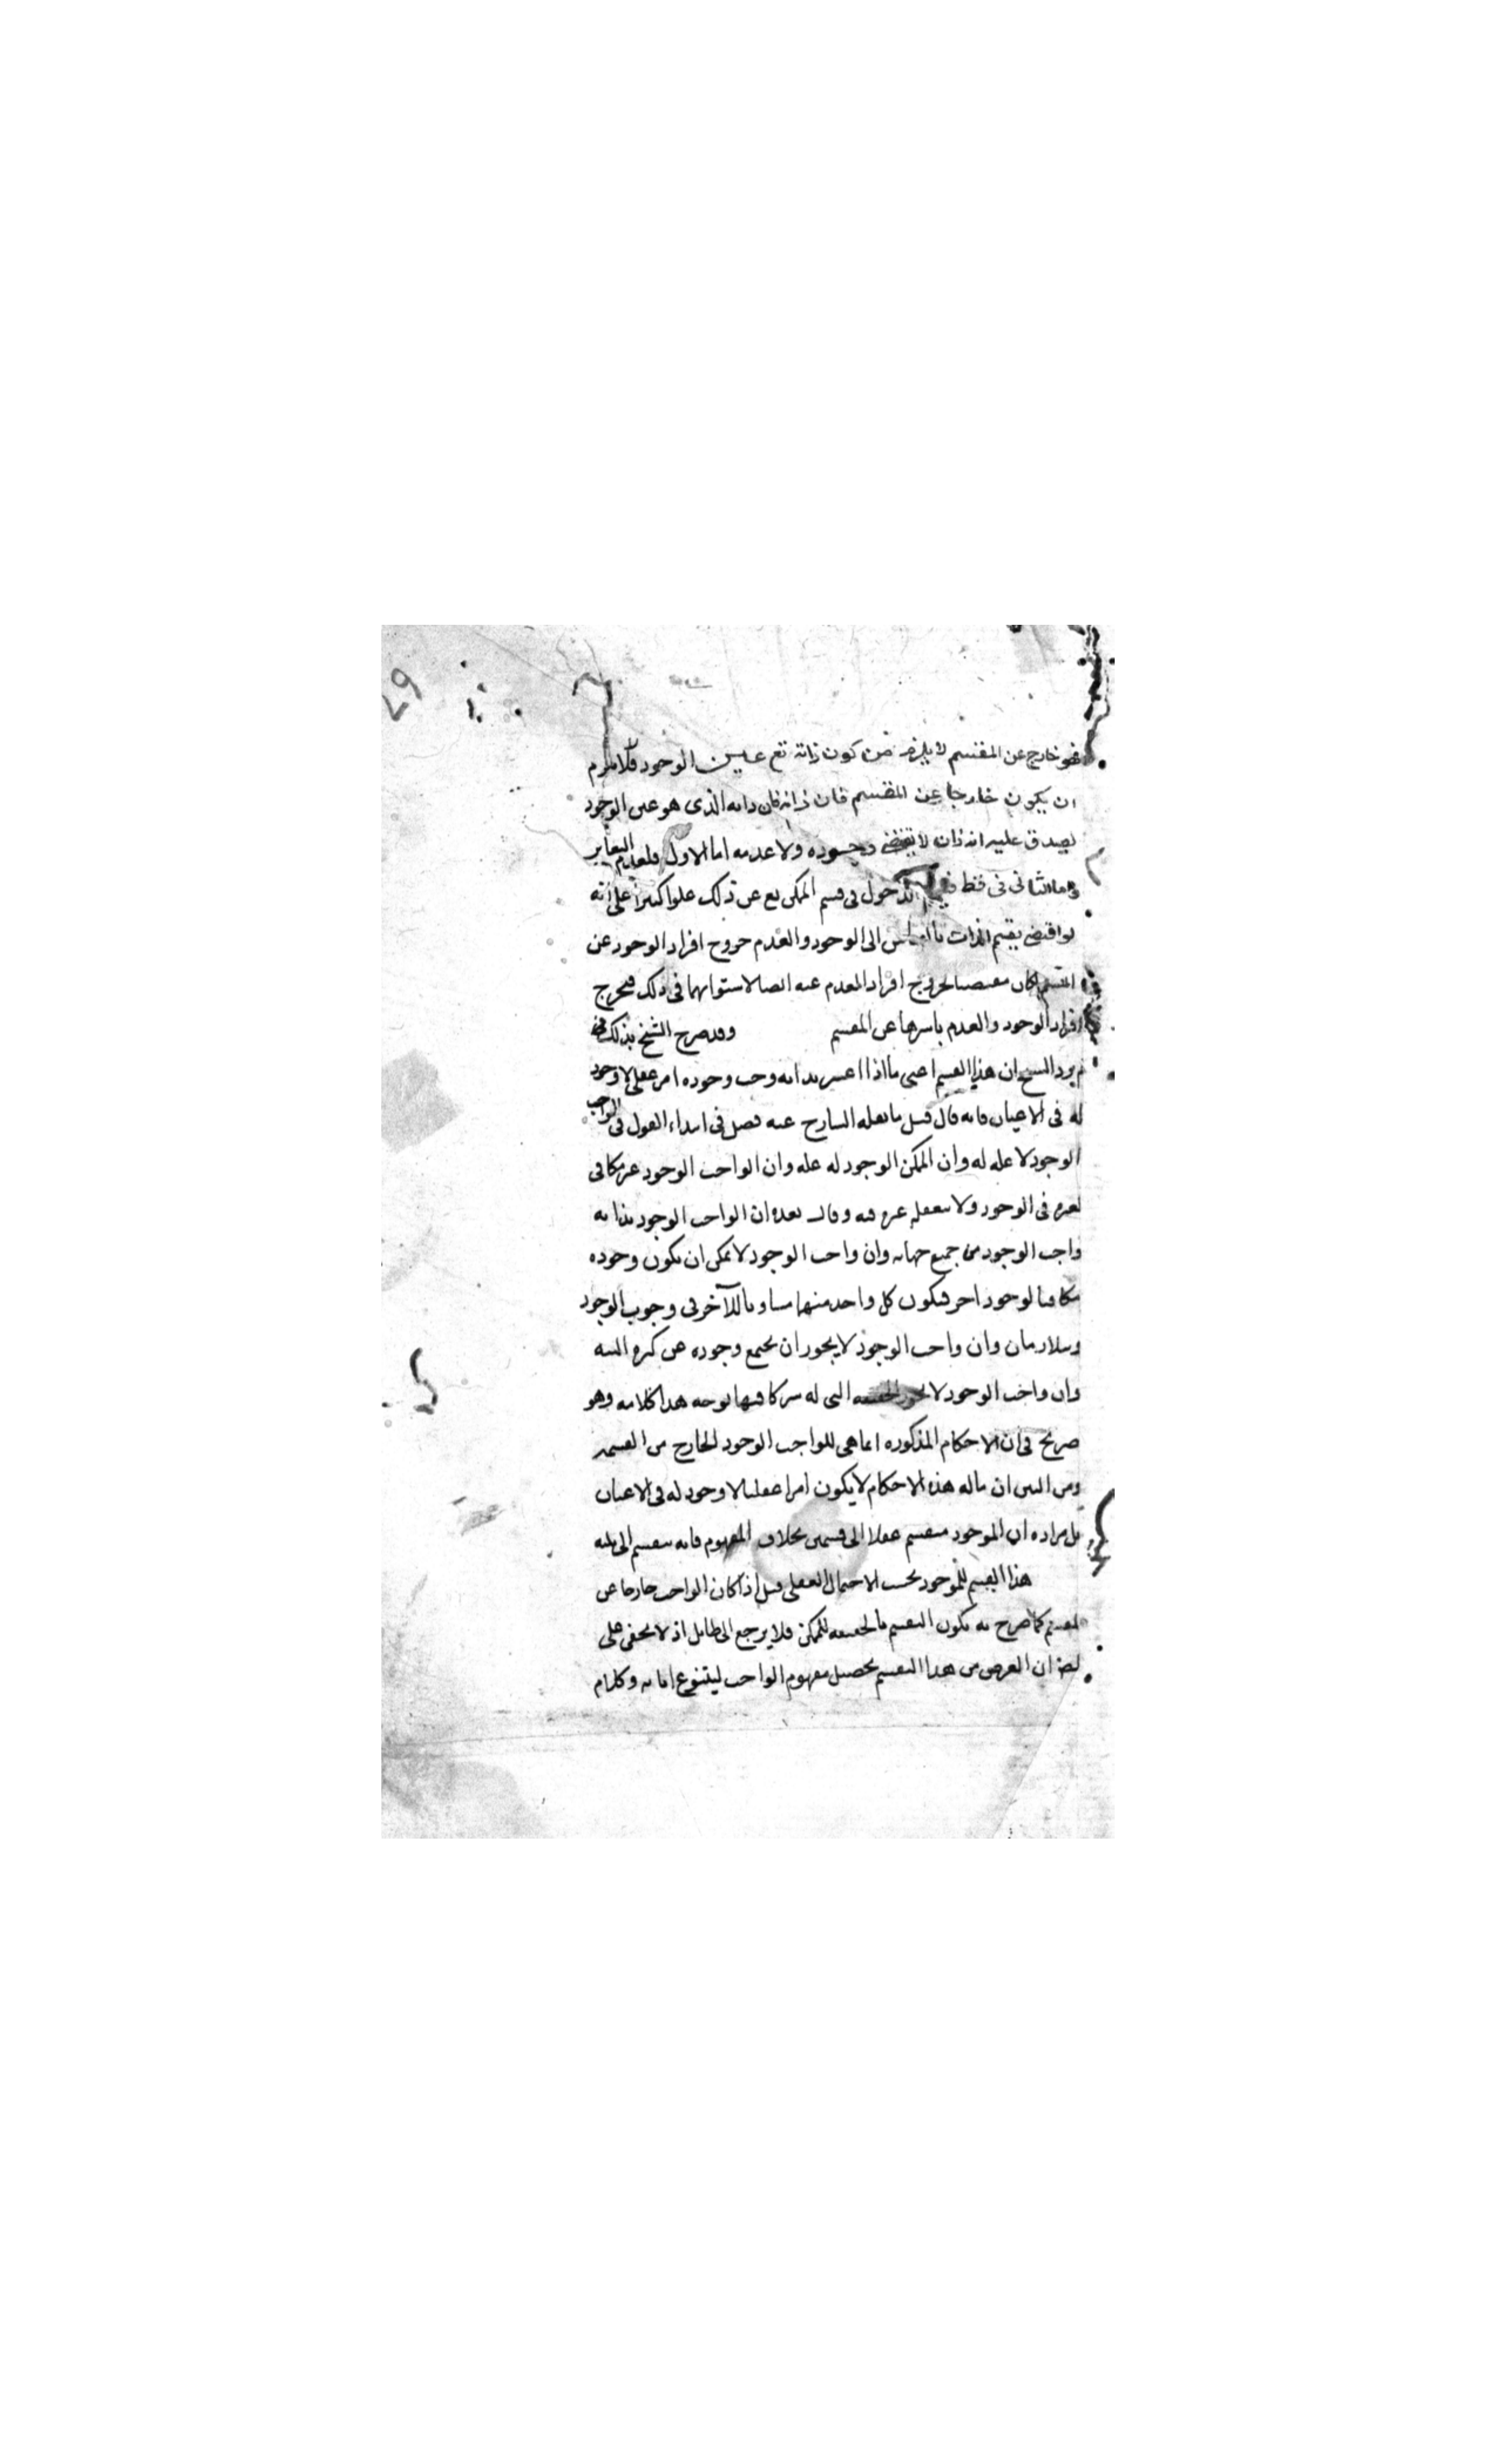 فهو خارج عن المقسم لا يلزم من كون ذاته تع عين الوجود فلا يلزم
ان يكون خارجا عن المقسم فان ذاته فان ذاته الذى هو عين الوجود
يصدق عليه انه ذات لا يقتضى وجوده ولا عدمه اما الاول فلعدم التغاير
واما الثانى فى فقط الدخول فى قسم الممكن تع عن ذلك علوا كبيرا على انه
لو اقتضى تقسيم الذات بالقياس الى الوجود والعدم خروج افراد الوجود عن
المقسم لكان مقتضيا لخروج افراد المعدم عنه ايضا لاستوائهما فى ذلك فيخرج
افراد الوجود والعدم باسرها عن المقسم وقد صرح الشيخ بذلك
لم يرد الشيخ ان هذا القسم اعنى ما اذا اعتبر بذاته وجب وجوده امر عقلى لا وجود
له فى الاعيان فانه قال قبل ما نقله الشارح عنه فصل فى ابتداء القول فى الواجب
الوجود لا علة له وان الممكن الوجود له علة وان الواجب الوجود غير مكافى
لغيره فى الوجود ولا متعلق بغيره فيه وقال بعده ان الواجب الوجود بذاته
واجب الوجود من جميع جهاته وان واجب الوجود لا يمكن ان يكون وجوده
مكافيا لوجود اخر فيكون كل واحد منهما مساويا للآخر فى وجوب الوجود
ويتلازمان وان واجب الوجود لا يجوز ان يجتمع وجوده عن كثرة البتة
وان واجب الوجود لا يجوز الحقيقة التى له مشتركا فيها بوجه هذا كلامه وهو
صريح فى ان الاحكام المذكورة انما هى للواجب الوجود الخارج من القسمة
ومن البين ان ما له هذه الاحكام لا يكون امرا عقليا لا وجود له فى الاعيان
بل مراده ان الموجود منقسم عقلا الى قسمين بخلاف المفهوم فانه ينقسم الى ثلثة
هذا التقسيم للموجود بحسب الاحتمال العقلى قيل اذا كان الواجب خارجا عن
المقسم كما صرح به يكون التقسيم بالحقيقة للممكن فلا يرجع الى طائل اذ لا يخفى على
ان الغرض من هذا التقسيم تحصيل مفهوم الواجب وكلام